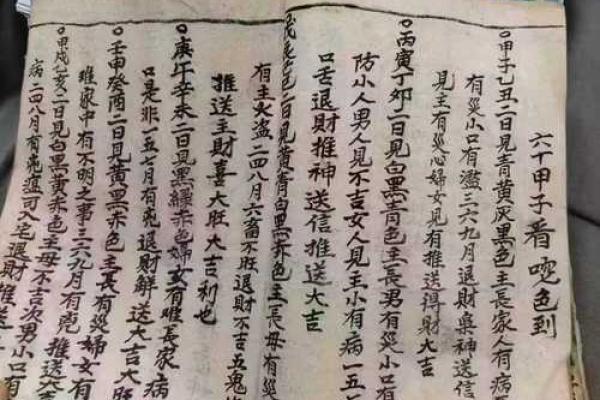 六十甲子看蛇色到
○甲子乙丑二日見青黃灰黑色主長家人有病
有災小口有濫三六九月退財臬神送信
見主有災心婦女見有推送得財大吉
○丙寅丁卯二日見白黑青色主長男有災小口有
防小人男人見不吉女人見主小有病一五
口舌退財推神送信推送大吉
二日見黃青白黑赤色主長母有災
有主火盜二四八月六畜不旺退財不吉五鬼
推送主財喜大旺大吉利也
○庚午辛未二日見黑綠赤色婦女有难長家病
口是非一五七月有兇退財鮮送大吉大
○壬申癸酉二日見黃黑赤色主長有災婦女有
难家中有不明之事三六九月有兇推送大吉
○甲戌乙亥二日見白黑黃赤色主母不吉次男小口有
病二四八月有兇盜可入宅退財推送